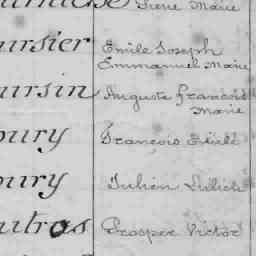 Pierre Marie
ursier Emile Joseph
Emmanuel Marie
ursin Auguste François
Marie
oury François
oury Julien
utros Prosper Victor